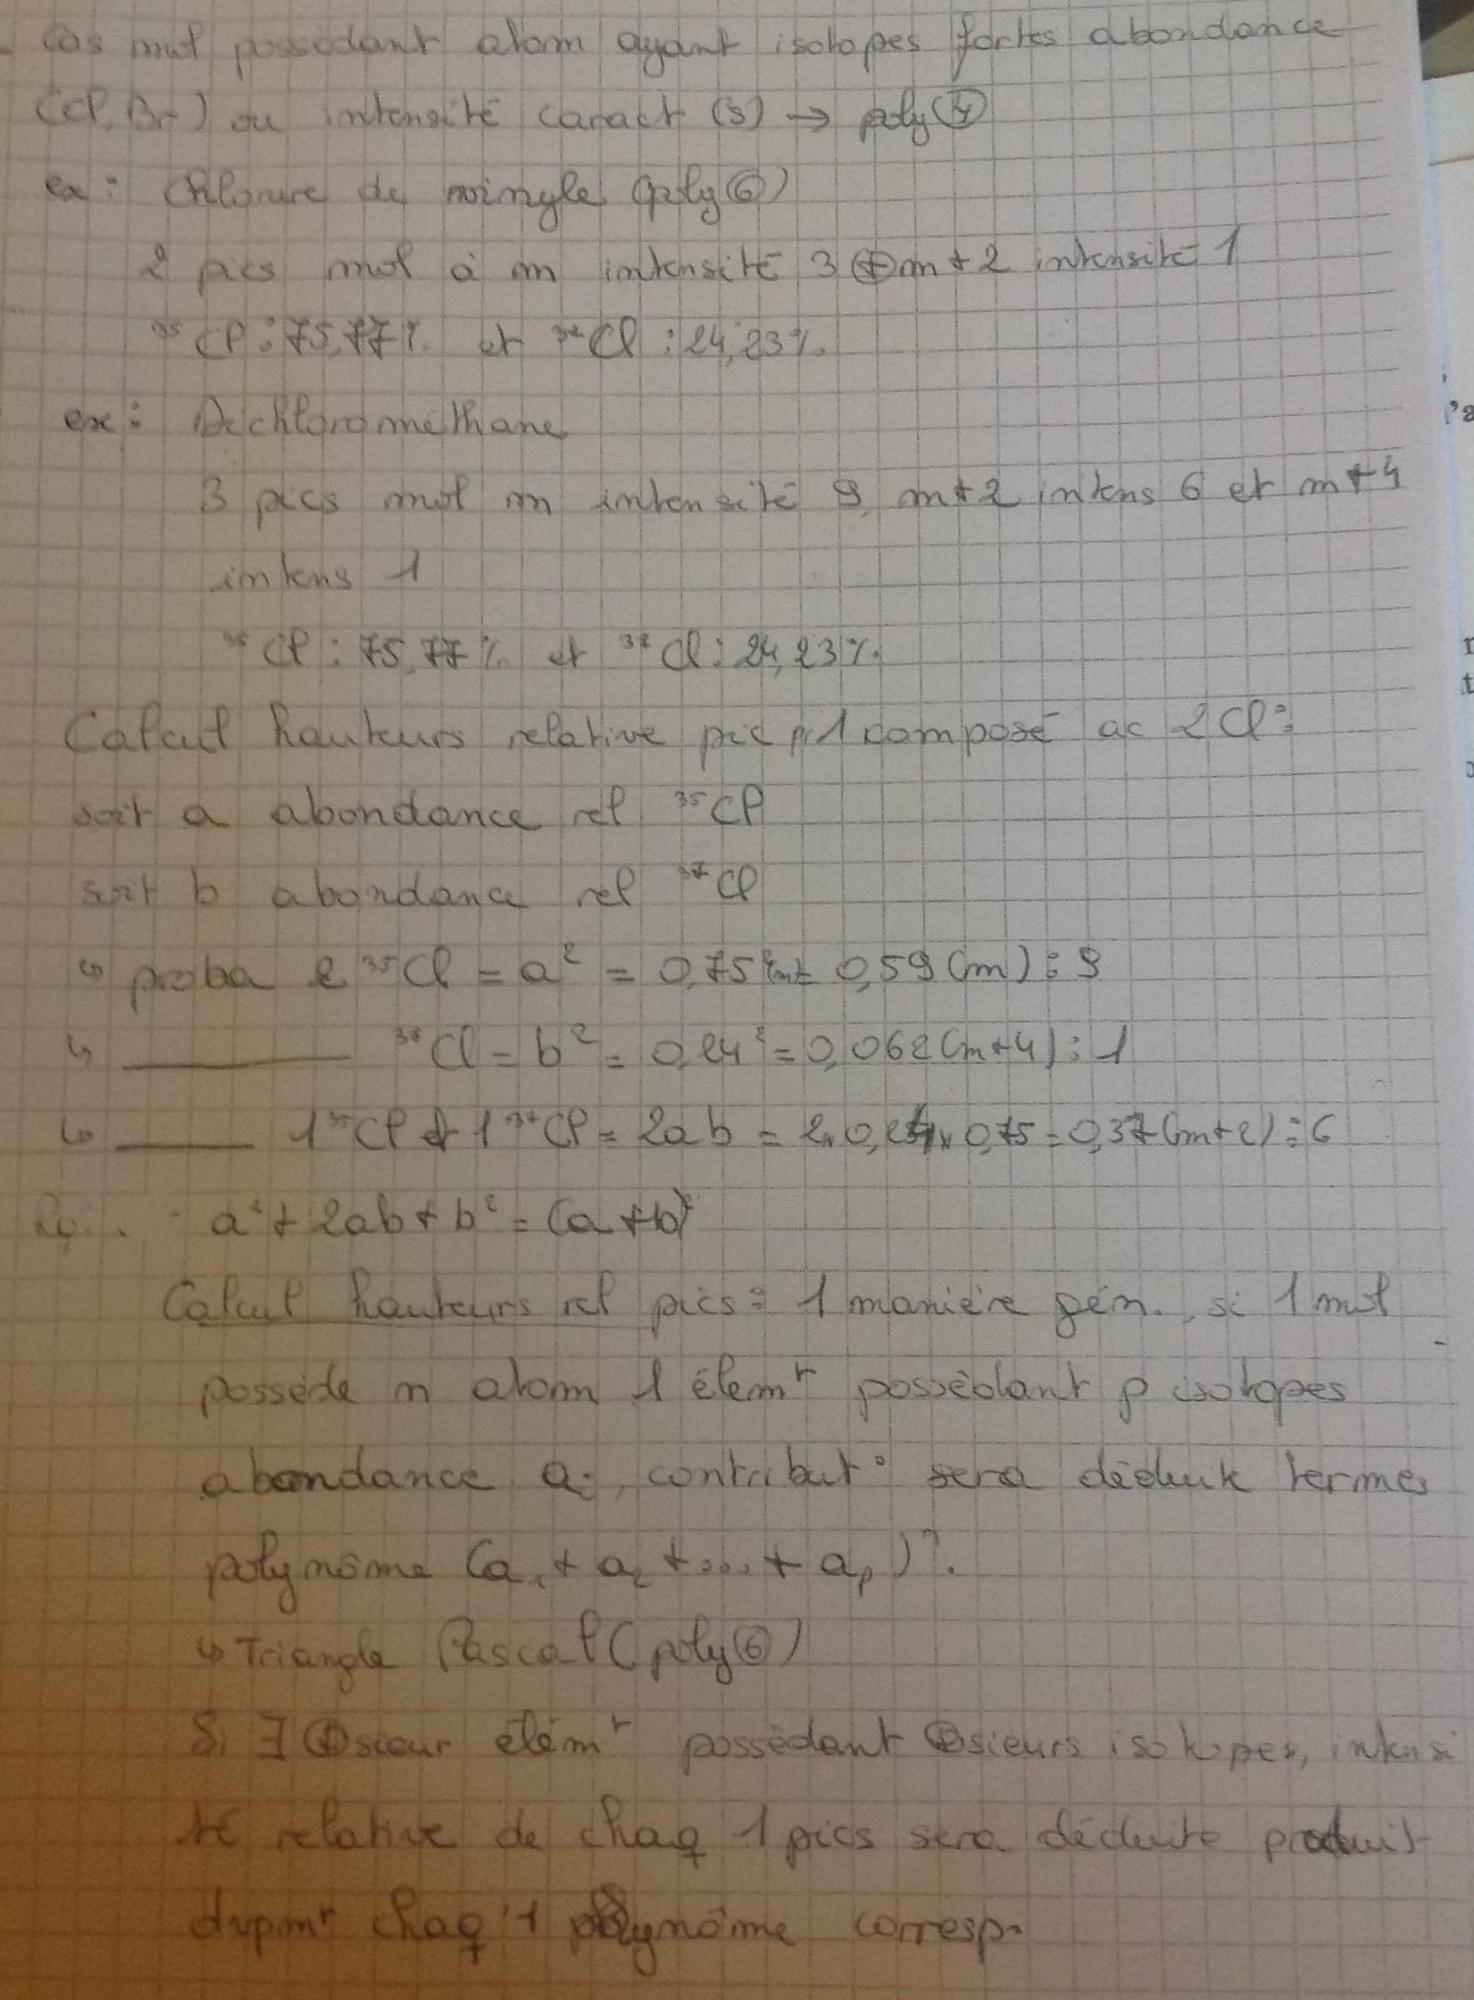 Cas mol possédant atom ayant isotopes fortes abondance
(Cl, Br) ou intensité caract (S) → poly
ex: Chlorure de vinyle (poly⑥)
2 pics mol à m intensité 3 ⊕ m+2 intensité 1
³⁵Cl : 75,77% et ³⁷Cl : 24,23%.
ex: Dichlorométhane
3 pics mol m intensité 9, m+2 intens 6 et m+4
intens 1
³⁵Cl : 75,77% et ³⁷Cl : 24,23%.
Calcul hauteurs relative pic pr 1 composé ac 2Cl:
soit a abondance rel ³⁵Cl
soit b abondance rel ³⁷Cl
↳ proba 2 ³⁵Cl = a² = 0,75² = 0,59 (m) : 9
↳ ——— ³⁷Cl = b² = 0,24² = 0,062 (m+4) : 1
↳ ——— 1 ³⁵Cl et 1 ³⁷Cl = 2ab = 2 x 0,24 x 0,75 = 0,37 (m+2) : 6
a² + 2ab + b² = (a+b)²
Calcul hauteurs rel pics : 1 manière gén., si 1 mol
possède n atom 1 élémᵗ possédant p isotopes
abondance aᵢ, contribut° sera déduite termes
polynôme (a₁ + a₂ + ... + aₚ)ⁿ.
↳ Triangle Pascal (poly⑥)
Si ∃ ⊕sieur élémᵗ possédant ⊕sieurs isotopes, intensi
té relative de chaq 1 pics sera déduite produit
dvpmᵗ chaq 1 polynôme corresp.